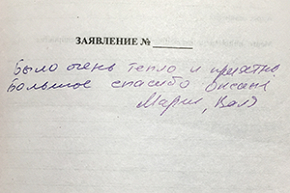 ЗАЯВЛЕНИЕ № ______
Было очень тепло и приятно,
Большое спасибо Оксане
Мария, Валя